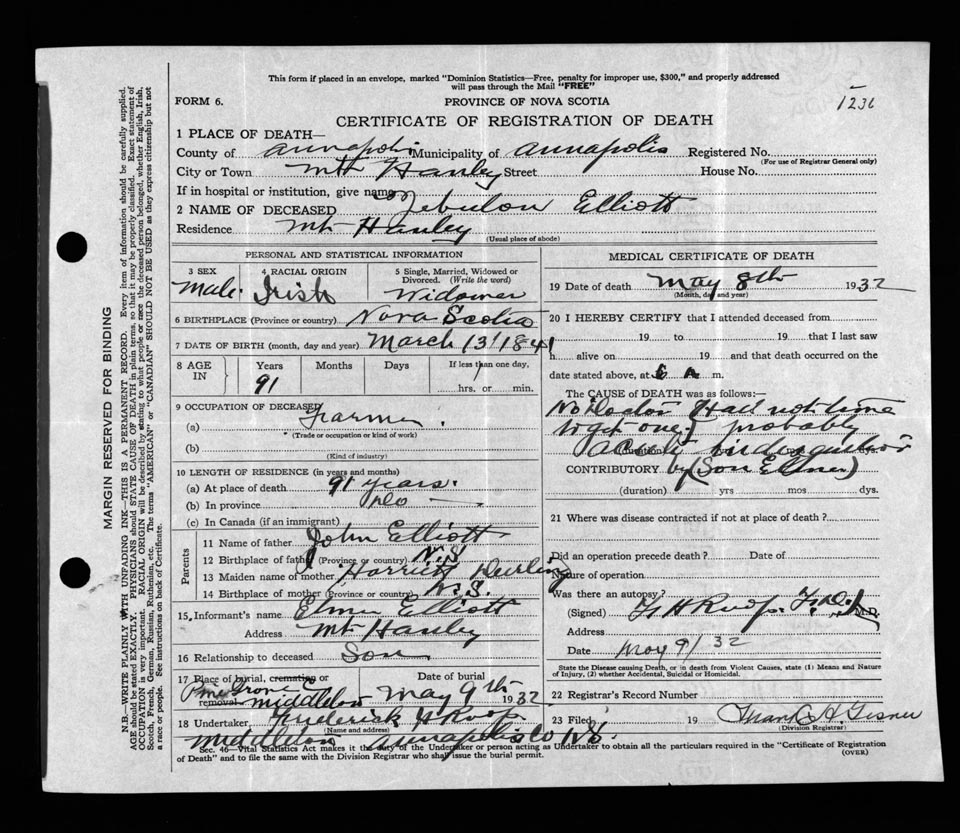 This form if placed in an envelope, marked "Dominion Statistics—Free, penalty for improper use, $300," and properly addressed
will pass through the Mail "FREE"
FORM 6.
PROVINCE OF NOVA SCOTIA
1236
CERTIFICATE OF REGISTRATION OF DEATH
1 PLACE OF DEATH—
County of Annapolis Municipality of Annapolis Registered No.
(For use of Registrar General only)
City or Town Mt Hanley Street House No.
If in hospital or institution, give name
2 NAME OF DECEASED Zebulon Elliott
Residence Mt Hanley
(Usual place of abode)
PERSONAL AND STATISTICAL INFORMATION
3 SEX Male
4 RACIAL ORIGIN Irish
5 Single, Married, Widowed or Divorced. (Write the word) Widower
6 BIRTHPLACE (Province or country) Nova Scotia
7 DATE OF BIRTH (month, day and year) March 13, 1841
8 AGE IN Years Months Days If less than one day,
91 hrs. or min.
9 OCCUPATION OF DECEASED
(a) Farmer
(Trade or occupation or kind of work)
(b)
(Kind of industry)
10 LENGTH OF RESIDENCE (in years and months)
(a) At place of death 91 years.
(b) In province Do
(c) In Canada (if an immigrant)
Parents
11 Name of father John Elliott
12 Birthplace of father (Province or country) N.S
13 Maiden name of mother Harriett Durling
14 Birthplace of mother (Province or country) N.S.
15. Informant's name Elmer Elliott
Address Mt Hanley
16 Relationship to deceased Son
17 Place of burial, cremation or removal Pine Grove C Middleton
Date of burial May 9th 1932
18 Undertaker, Frederick H Roop
(Name and address)
Middleton Annapolis Co N.S.
MEDICAL CERTIFICATE OF DEATH
19 Date of death May 8th 1932
(Month, day and year)
20 I HEREBY CERTIFY that I attended deceased from
19 to 19 that I last saw
h alive on 19 and that death occurred on
date stated above, at 6 A m.
The CAUSE of DEATH was as follows:
No Doctor Had not time
to get one) probably
acute indigestion
(duration) yrs mos dys.
CONTRIBUTORY by (Son Elmer)
(duration) yrs mos dys.
21 Where was disease contracted if not at place of death?
Did an operation precede death? Date of
Nature of operation
Was there an autopsy?
(Signed) F H Roop M.D.
Address
Date May 9/32
State the Disease causing Death, or in death from Violent Causes, state (1) Means and Nature
of Injury, (2) whether Accidental, Suicidal or Homicidal.
22 Registrar's Record Number
23 Filed 19 Frank H. Gesner
(Division Registrar)
Sec. 46—Vital Statistics Act makes it the duty of the Undertaker or person acting as Undertaker to obtain all the particulars required in the "Certificate of Registration
of Death" and to file the same with the Division Registrar who shall issue the burial permit.
(OVER)
MARGIN RESERVED FOR BINDING
N.B.—WRITE PLAINLY WITH UNFADING INK—THIS IS A PERMANENT RECORD. Every item of information should be carefully supplied.
AGE should be stated EXACTLY. PHYSICIANS should STATE CAUSE OF DEATH in plain terms, so that it may be properly classified. Exact statement of
OCCUPATION is very important. RACIAL ORIGIN will be described by stating to what people or race the deceased person belonged, whether English, Irish,
Scotch, French, German, Russian, Ruthenian, etc. The terms "AMERICAN" or "CANADIAN" SHOULD NOT BE USED as they express citizenship but not
a race or people. See instructions on back of Certificate.